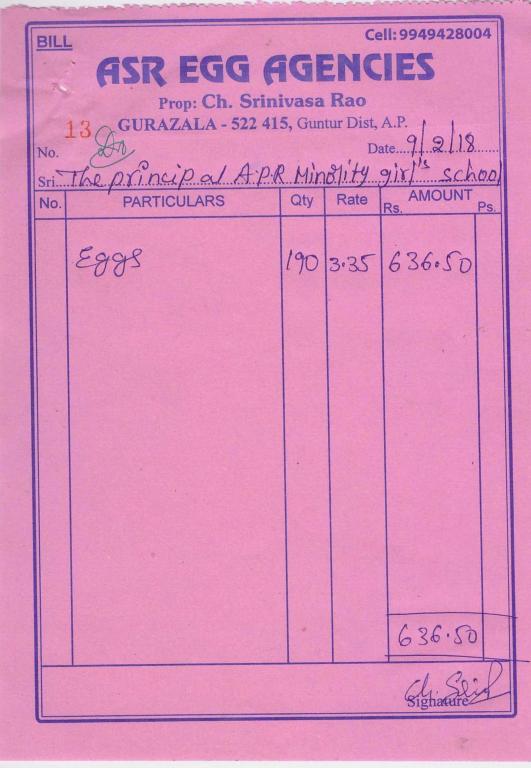 BILL
Cell: 9949428004
ASR EGG AGENCIES
Prop: Ch. Srinivasa Rao
GURAZALA - 522 415, Guntur Dist, A.P.
No. 13 Date 9/2/18
Sri The principal A.P.R Minority girl's school
No. PARTICULARS Qty Rate AMOUNT
Rs. Ps.
Eggs 190 3.35 636.50
636.50
Signature